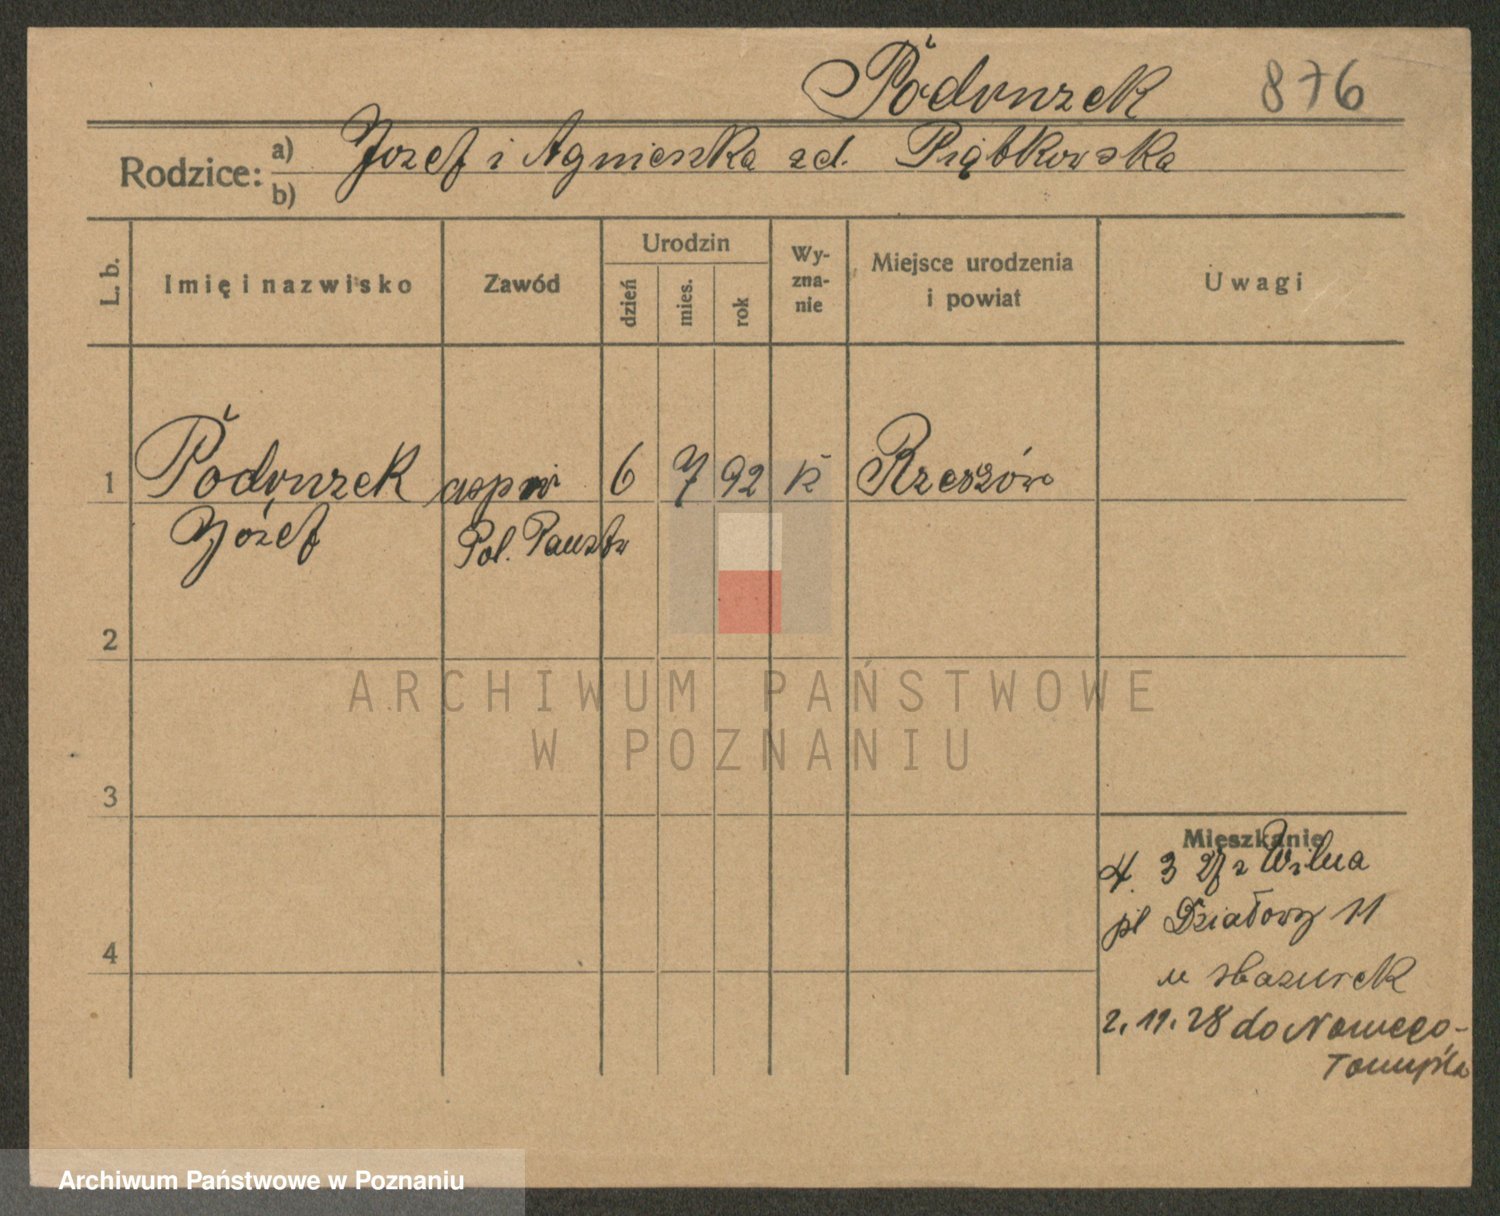 Poduszek 876
Rodzice: a) Jozef i Agnieszka zd. Piątkowska
b)
L. b. Imię i nazwisko Zawód Urodzin dzień mies. rok Wy-zna-nie Miejsce urodzenia i powiat Uwagi
1 6 7 92 k Rzeszów
Józef Pol. Państw
2
ARCHIWUM PAŃSTWOWE
W POZNANIU
3
Mieszkanie
4. 3 27 z Wilna
pl Działowy 11
4
u Mazurek
2. 11. 28 do Nowego-
Tomyśla
Archiwum Państwowe w Poznaniu